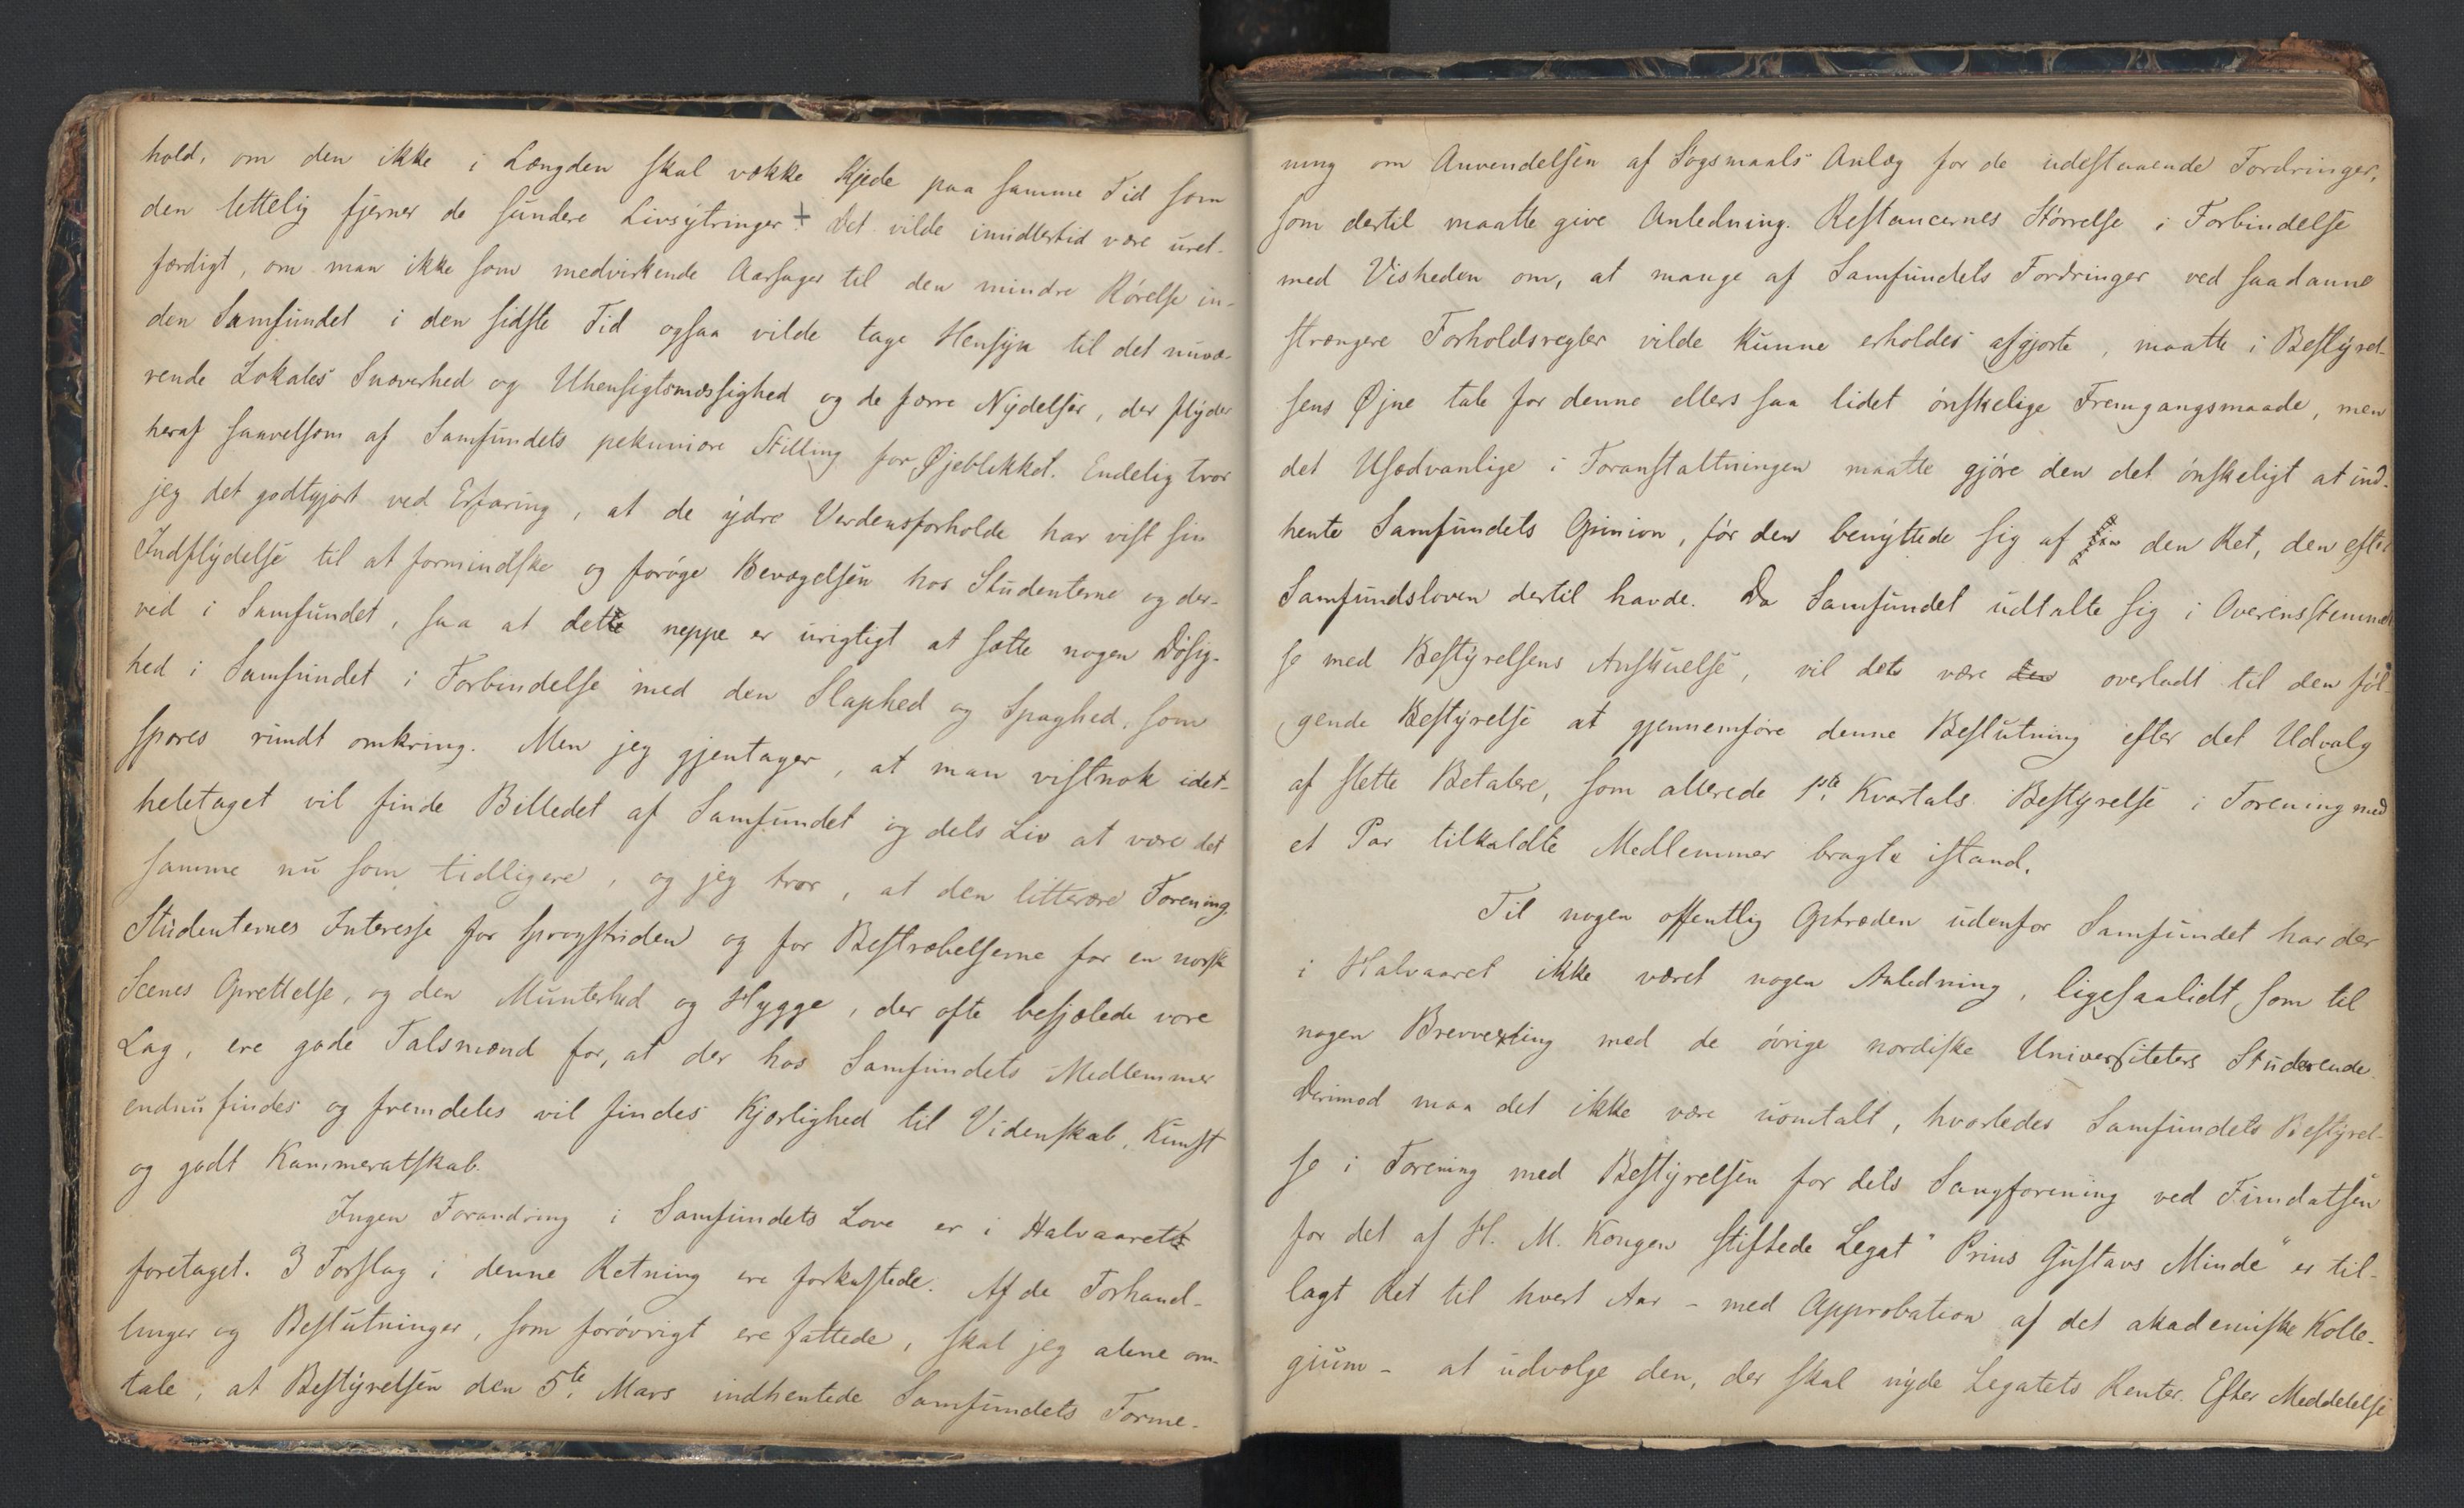 hold, om den ikke i Længden skal vække Kjede paa samme Tid som
den lettelig fjerner de sundere Livsytringer. + Det vilde imidlertid være uret-
færdigt, om man ikke som medvirkende Aarsager til den mindre Rörelse in-
den Samfundet i den sidste Tid ogsaa vilde tage Hensyn til det nuvæ-
rende Lokales Snæverhed og Uhensigtsmæssighed og de færre Nydelser, der flyder
heraf saavelsom af Samfundets pekuniære Stilling for Øjeblikket. Endelig tror
jeg det godtgjort ved Erfaring, at de ydre Verdensforholde har vist sin
Indflydelse til at formindske og foröge Bevægelsen hos Studenterne og der-
ved i Samfundet, saa at dette neppe er urigtigt at sætte nogen Dösig-
hed i Samfundet i Forbindelse med den Slaphed og Spaghed, som
spores rundt omkring. Men jeg gjentager, at man vistnok idet-
heletaget vil finde Billedet af Samfundet og dets Liv at være det
samme nu som tidligere, og jeg tror, at den litterære Forening,
Studenternes Interesse for Sprogstriden og for Bestræbelserne for en norsk
Scenes Oprettelse, og den Munterhed og Hygge, der ofte besjælede vore
Lag, ere gode Talsmænd for, at der hos Samfundets Medlemmer
endnu findes og fremdeles vil findes Kjærlighed til Videnskab, Kunst
og godt Kammeratskab.
Ingen Forandring i Samfundets Love er i Halvaaret
foretaget. 3 Forslag i denne Retning ere forkastede. Af de Forhand-
linger og Beslutninger, som forövrigt ere fattede, skal jeg alene om-
tale, at Bestyrelsen den 5te Mars indhentede Samfundets Forme-
ning om Anvendelsen af Sögsmaals Anlæg for de udestaaende Fordringer,
som dertil maatte give Anledning. Restancernes Störrelse i Forbindelse
med Visheden om, at mange af Samfundets Fordringer ved saadanne
strængere Forholdsregler vilde kunne erholdes afgjorte, maatte i Bestyrel-
sens Øjne tale for denne ellers saa lidet önskelige Fremgangsmaade, men
det Usædvanlige i Foranstaltningen maatte gjöre den det önskeligt at ind-
hente Samfundets Opinion, för den benyttede sig af den Ret, den efter
Samfundsloven dertil havde. Da Samfundet udtalte sig i Overensstemmel-
se med Bestyrelsens Anskuelse, vil det være den overladt til den föl-
gende Bestyrelse at gjennemföre denne Beslutning efter det Udvalg
af slette Betalere, som allerede 1ste Kvartals Bestyrelse i Forening med
et Par tilkaldte Medlemmer bragte istand.
Til nogen offentlig Optræden udenfor Samfundet har der
i Halvaaret ikke været nogen Anledning, ligesaalidt som til
nogen Brevvexling med de övrige nordiske Universiteters Studerende.
Derimod maa det ikke være uomtalt, hvorledes Samfundets Bestyrel-
se i Forening med Bestyrelsen for dets Sangforening ved Fundatsen
for det af H. M. Kongen stiftede Legat "Prins Gustavs Minde" er til-
lagt Ret til hvert Aar - med Approbation af det akademiske Kolle-
gium - at udvælge den, der skal nyde Legatets Renter. Efter Meddelelse